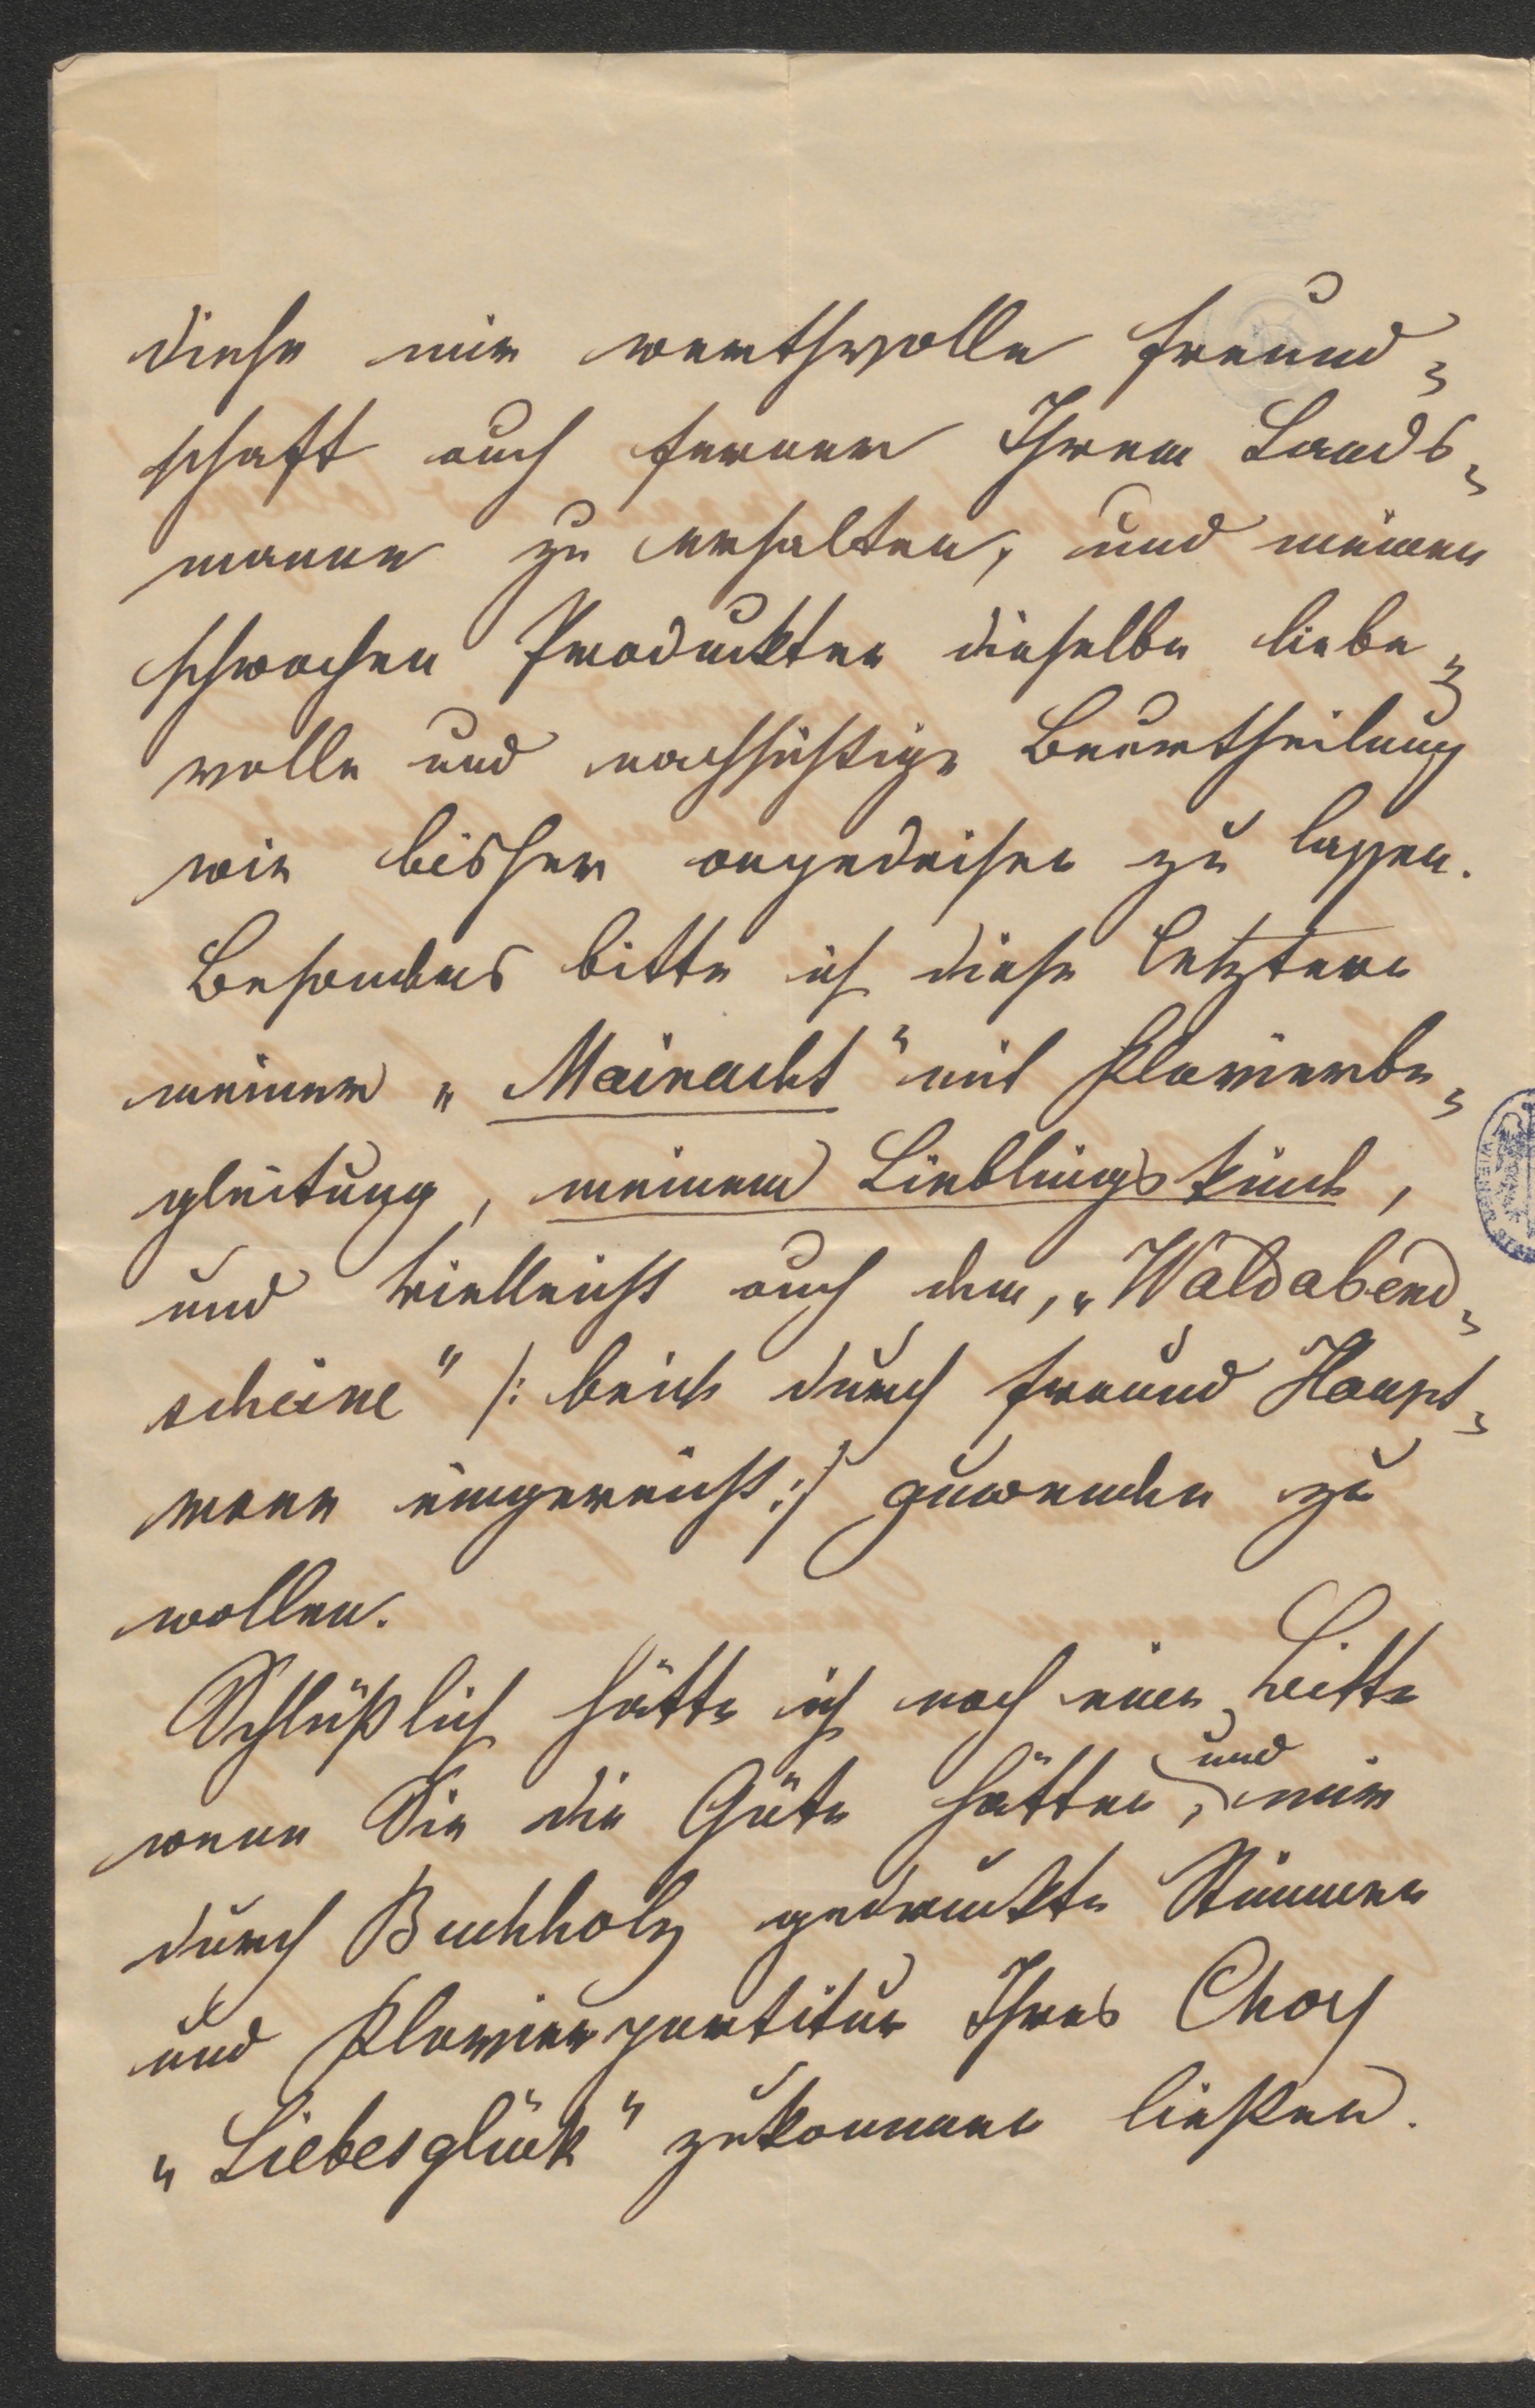 diese mir werthvolle Freund=
schaft auch ferner Ihrem Lands=
manne zu erhalten, und meinen
schwachen Produckten dieselbe liebe=
volle und nachsichtige Beurtheilung
wie bisher angedeihen zu lassen.
Besonders bitte ich diese letztere
meiner „Mainacht" mit Klavierbe=
gleitung, meinem Lieblingskinde,
und vielleicht auch dem, „Waldabend=
scheine" /: beide durch Freund Haupt=
mann eingereicht :/ zuwenden zu
wollen.
Schlüßlich hätte ich noch eine Bitte
wenn Sie die Güte hätten, und mir
durch Buchholz gedruckte Stimmen
und Klavierpartitur Ihres Chors
„Liebesglück" zukommen ließen.
WIENER